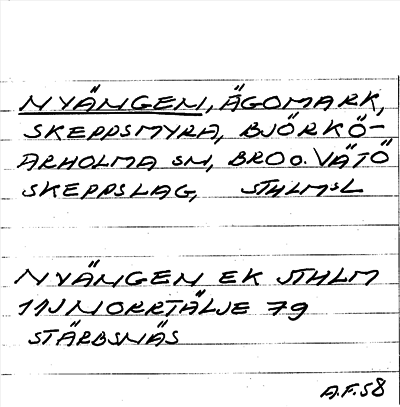 NYÄNGEN, ÄGOMARK,
SKEPPSMYRA, BJÖRKÖ-
ARHOLMA SN, BRO O. VÄTÖ
SKEPPSLAG, STHLMSL
NYÄNGEN EK STHLM
11J NORRTÄLJE 79
STÄRBSNÄS
A.F.58